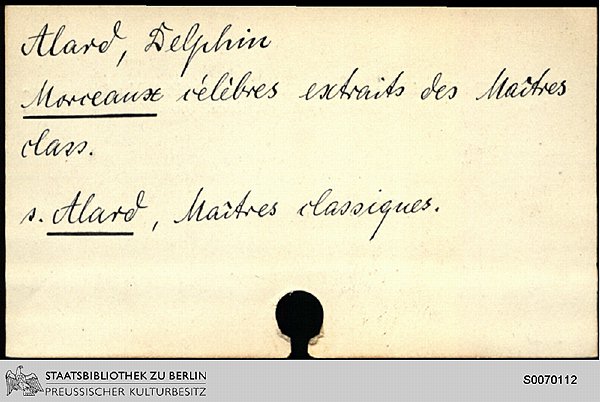 Alard, Delphin
Morceaux célèbres extraits des Maîtres
class.
s. Alard, Maîtres classiques.
STAATSBIBLIOTHEK ZU BERLIN
PREUSSISCHER KULTURBESITZ
S0070112